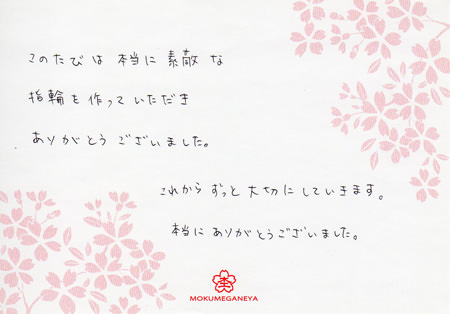 このたびは 本当に 素敵 な
指輪を作って いただき
ありがとう ございました。
これから ずっと 大切に していきます。
本当に ありがとうございました。
杢
MOKUMEGANEYA